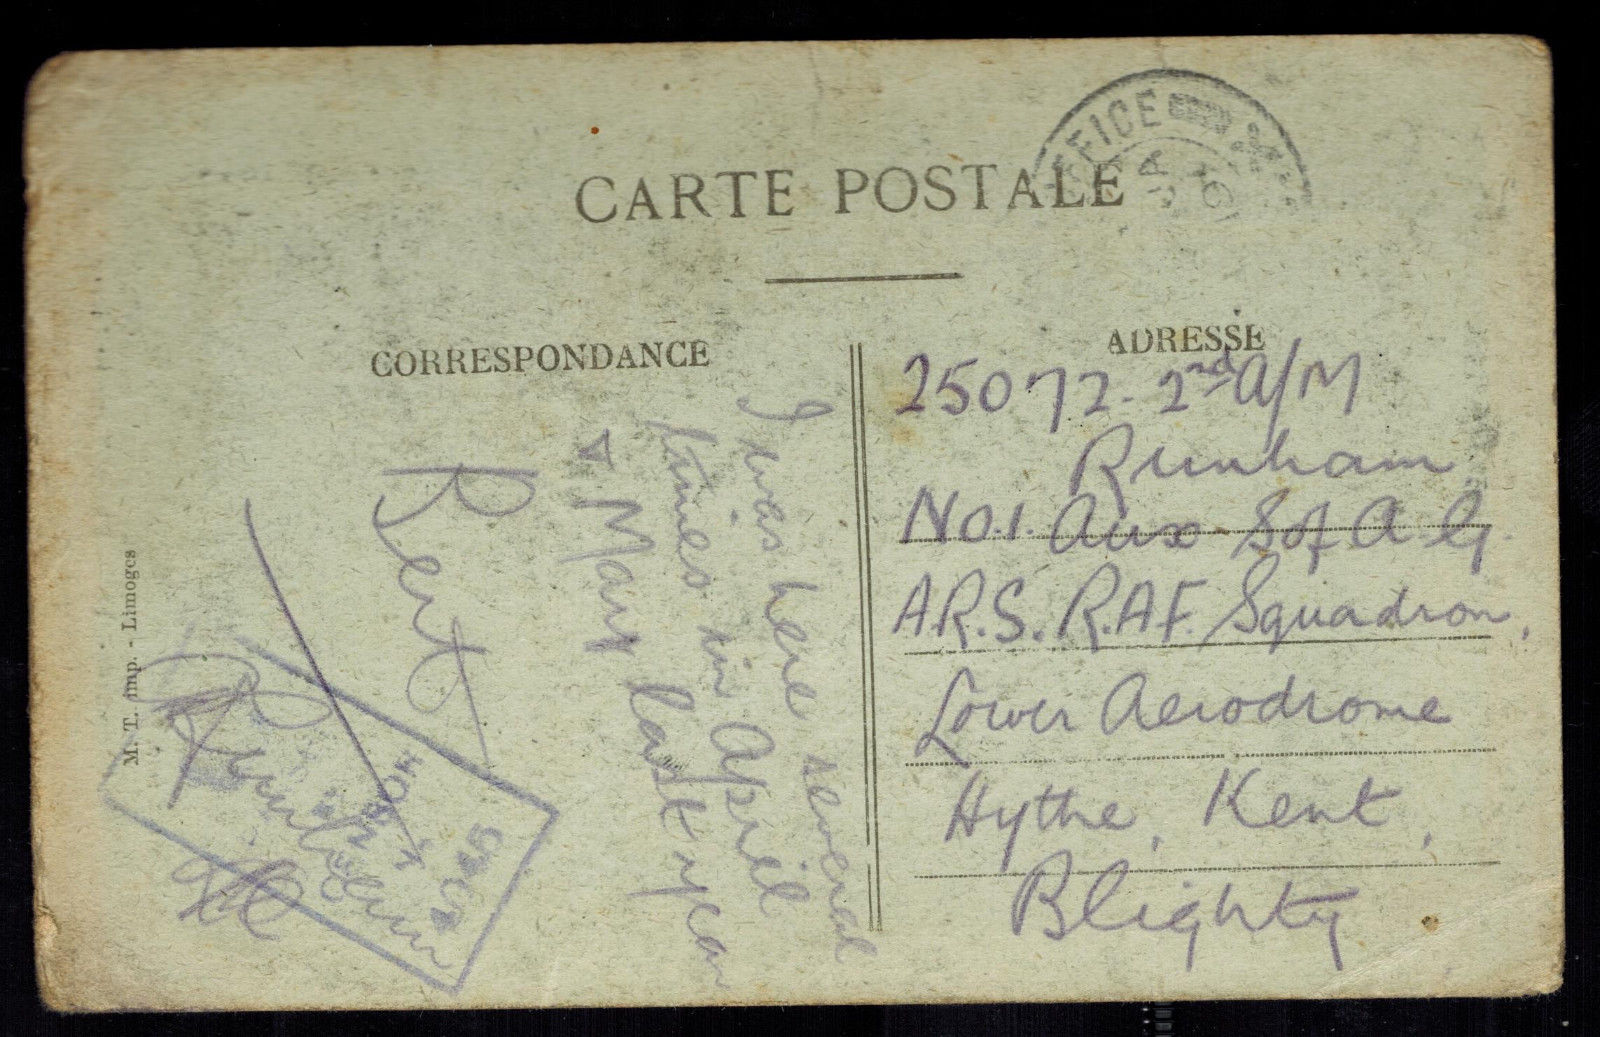 CARTE POSTALE
OFFICE
JA
CORRESPONDANCE
ADRESSE
I was here several
times in April
& May last year
Bert
25072. 2nd A/M
Runham
No.1. Aux S of A G.
A.R.S. R.A.F. Squadron,
Lower Aerodrome
Hythe, Kent,
Blighty
M. T. imp. - Limoges